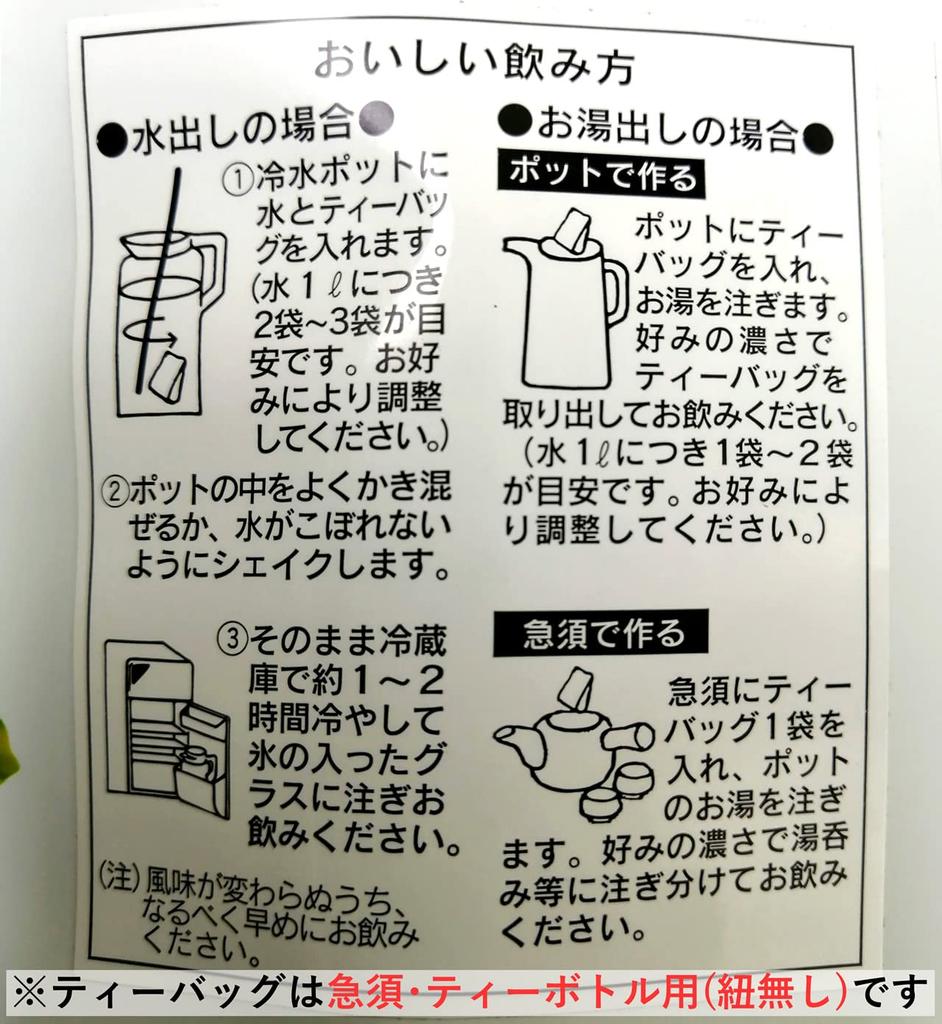 おいしい飲み方
●水出しの場合●
①冷水ポットに
水とティーバッ
グを入れます。
(水1ℓにつき
2袋~3袋が目
安です。お好
みにより調整
してください。)
②ポットの中をよくかき混
ぜるか、水がこぼれない
ようにシェイクします。
③そのまま冷蔵
庫で約1~2
時間冷やして
氷の入ったグ
ラスに注ぎお
飲みください。
(注)風味が変わらぬうち、
なるべく早めにお飲み
ください。
●お湯出しの場合●
ポットで作る
ポットにティー
バッグを入れ、
お湯を注ぎます。
好みの濃さで
ティーバッグを
取り出してお飲みください。
(水1ℓにつき1袋~2袋
が目安です。お好みによ
り調整してください。)
急須で作る
急須にティー
バッグ1袋を
入れ、ポット
のお湯を注ぎ
ます。好みの濃さで湯呑
み等に注ぎ分けてお飲み
ください。
※ティーバッグは急須・ティーボトル用(紐無し)です